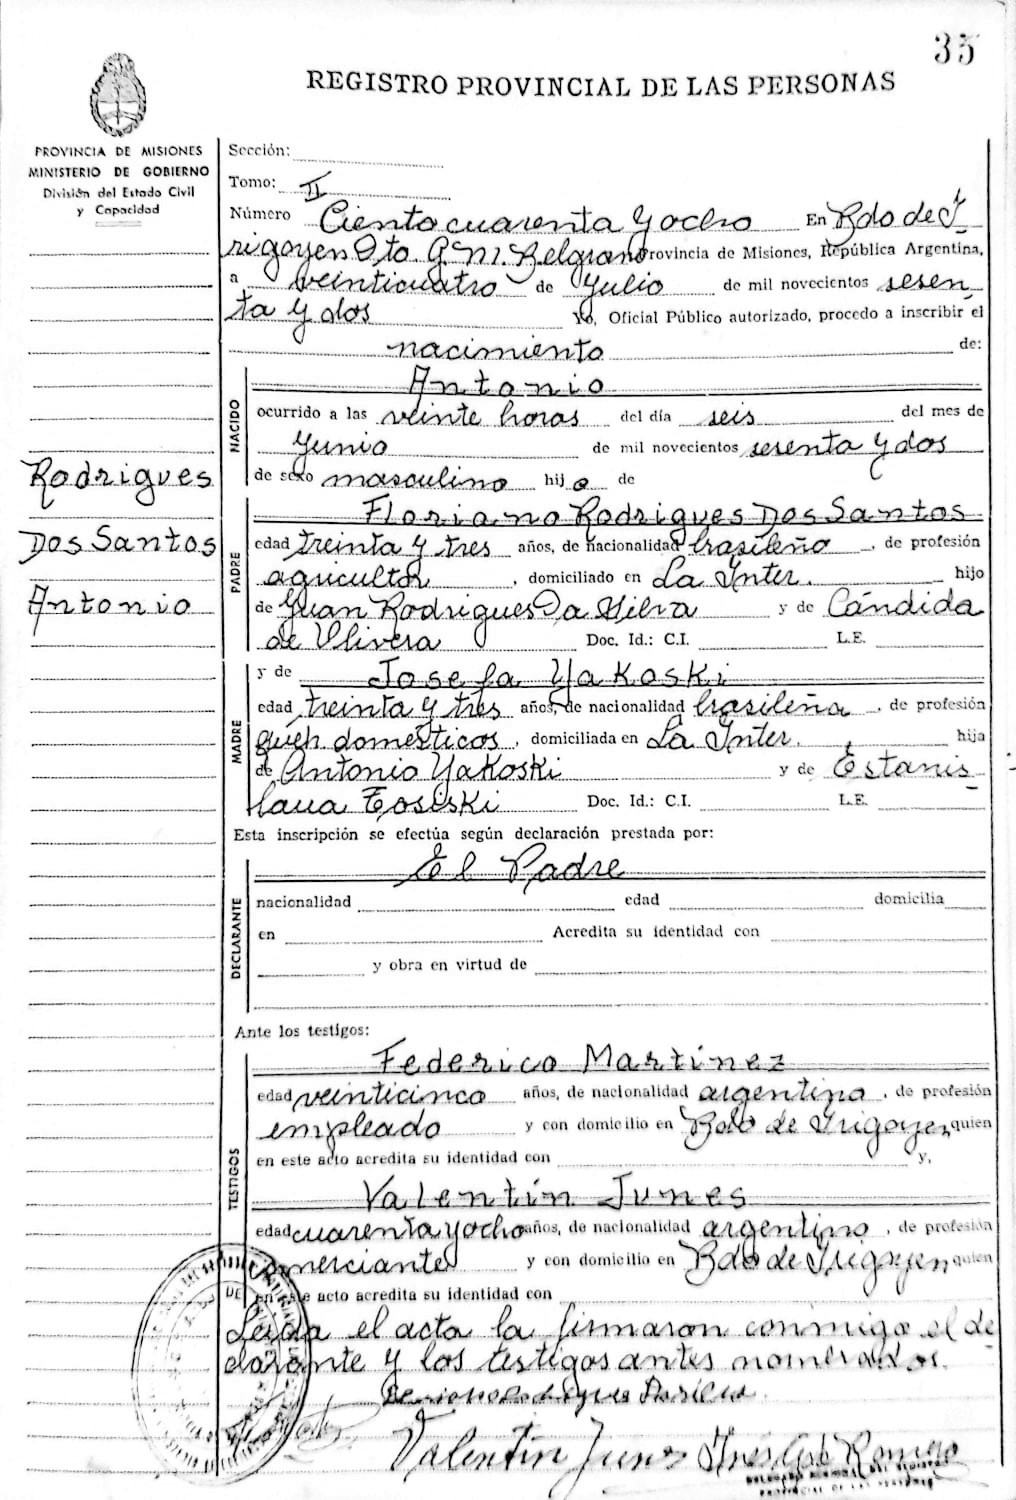 35
REGISTRO PROVINCIAL DE LAS PERSONAS
PROVINCIA DE MISIONES
MINISTERIO DE GOBIERNO
División del Estado Civil
y Capacidad
Sección:
Tomo: II
Número Ciento cuarenta y ocho En Bdo de I
rigoyen Dto. G. M. Belgrano Provincia de Misiones, República Argentina,
a veinticuatro de Julio de mil novecientos sesen
ta y dos Yo, Oficial Público autorizado, procedo a inscribir el
nacimiento de:
NACIDO
Antonio
ocurrido a las veinte horas del día seis del mes de
Junio de mil novecientos sesenta y dos
de sexo masculino hijo de
Rodrigues
Dos Santos
Antonio
PADRE
Floriano Rodrigues Dos Santos
edad treinta y tres años, de nacionalidad brasileño, de profesión
agricultor, domiciliado en La Inter. hijo
de Juan Rodrigues Da Silva y de Cándida
de Olivera Doc. Id.: C.I. L.E.
MADRE
y de Josefa Yakoski
edad treinta y tres años, de nacionalidad brasileña, de profesión
queh domésticos, domiciliada en La Inter. hija
de Antonio Yakoski y de Estanis
laua Doc. Id.: C.I. L.E.
Esta inscripción se efectúa según declaración prestada por:
DECLARANTE
El Padre
nacionalidad edad domicilia
en Acredita su identidad con
y obra en virtud de
Ante los testigos:
TESTIGOS
Federico Martínez
edad veinticinco años, de nacionalidad argentino, de profesión
empleado y con domicilio en Bdo de Irigoyen quien
en este acto acredita su identidad con y,
Valentín Junes
edad cuarenta y ocho años, de nacionalidad argentino, de profesión
comerciante y con domicilio en Bdo de Irigoyen quien
en este acto acredita su identidad con
Leida el acta la firmaron conmigo el de
clarante y los testigos antes nombrados.
DE
Valentín Junes Romero
DELEGADO REGISTRO
PROVINCIAL DE LAS PERSONAS